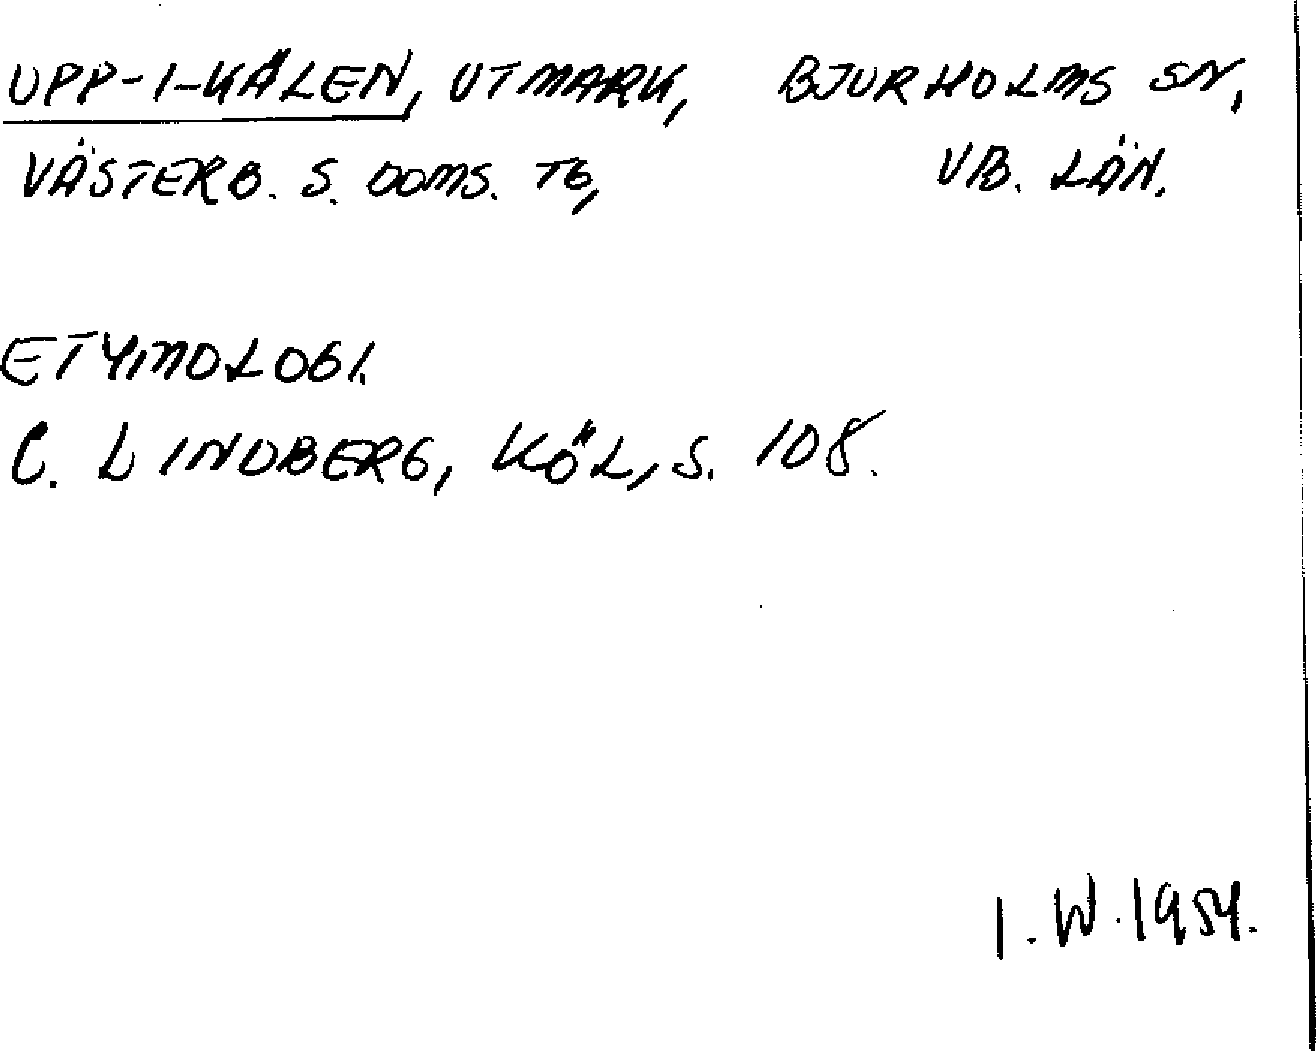 UPP-I-KÅLEN, UTMARK, BJURHOLMS SN,
VÄSTERB. S. DOMS. TG, VB. LÄN.
ETYMOLOGI.
C. LINDBERG, KÖL, S. 108.
I. W. 1954.